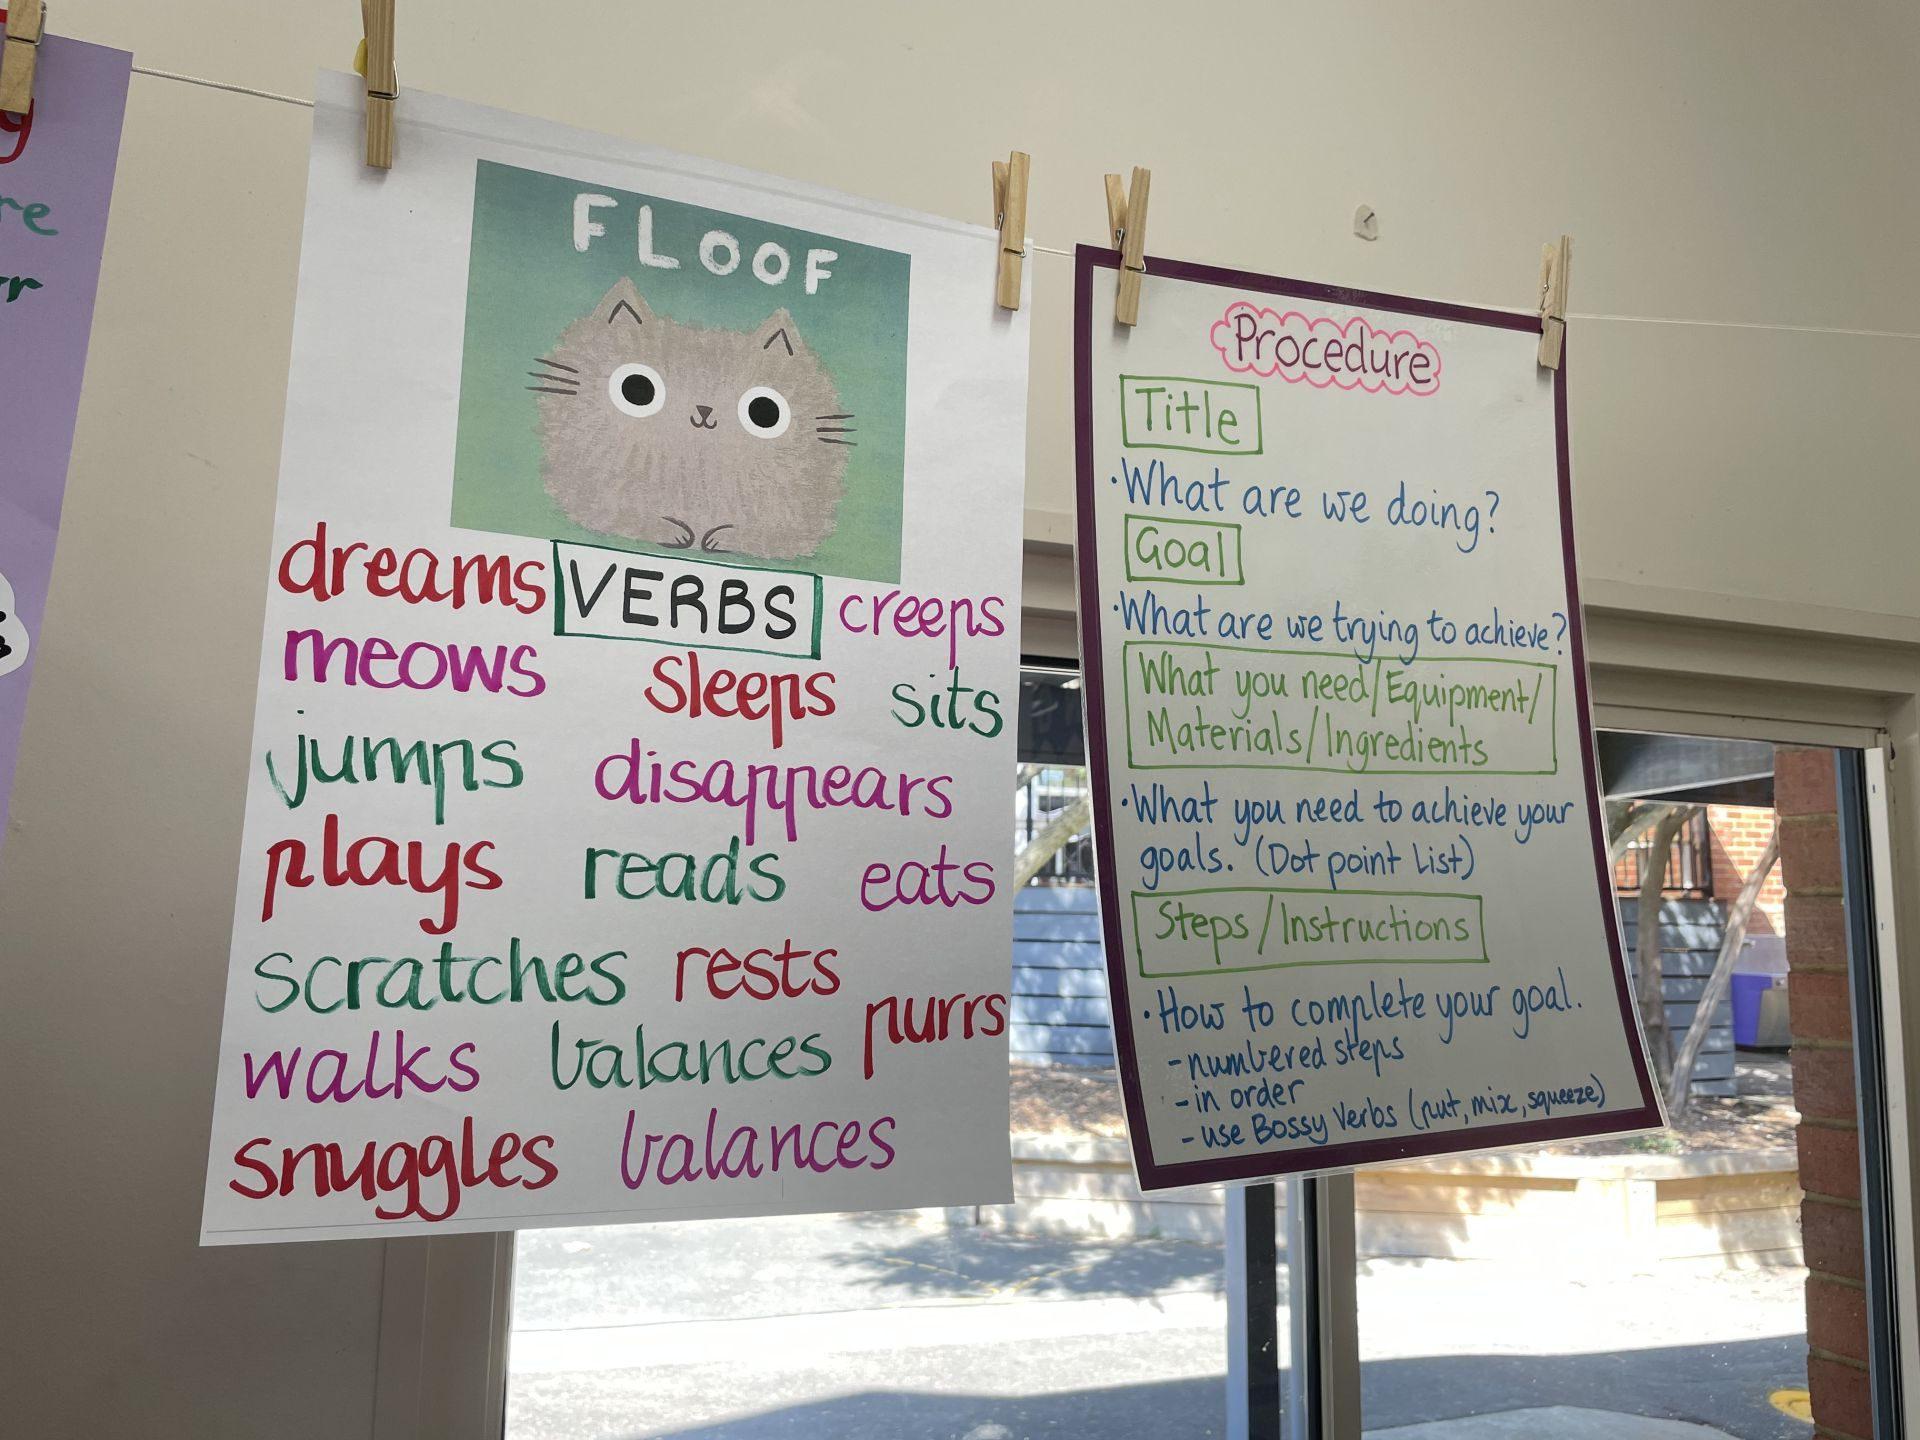 re
FLOOF
dreams VERBS creeps
meows sleeps sits
jumps disappears
plays reads eats
scratches rests
purrs
walks balances
snuggles balances
Procedure
Title
·What are we doing?
Goal
·What are we trying to achieve?
What you need/Equipment/
Materials/Ingredients
·What you need to achieve your
goals. (Dot point List)
Steps/Instructions
·How to complete your goal.
-numbered steps
-in order
-use Bossy Verbs (put, mix, squeeze)